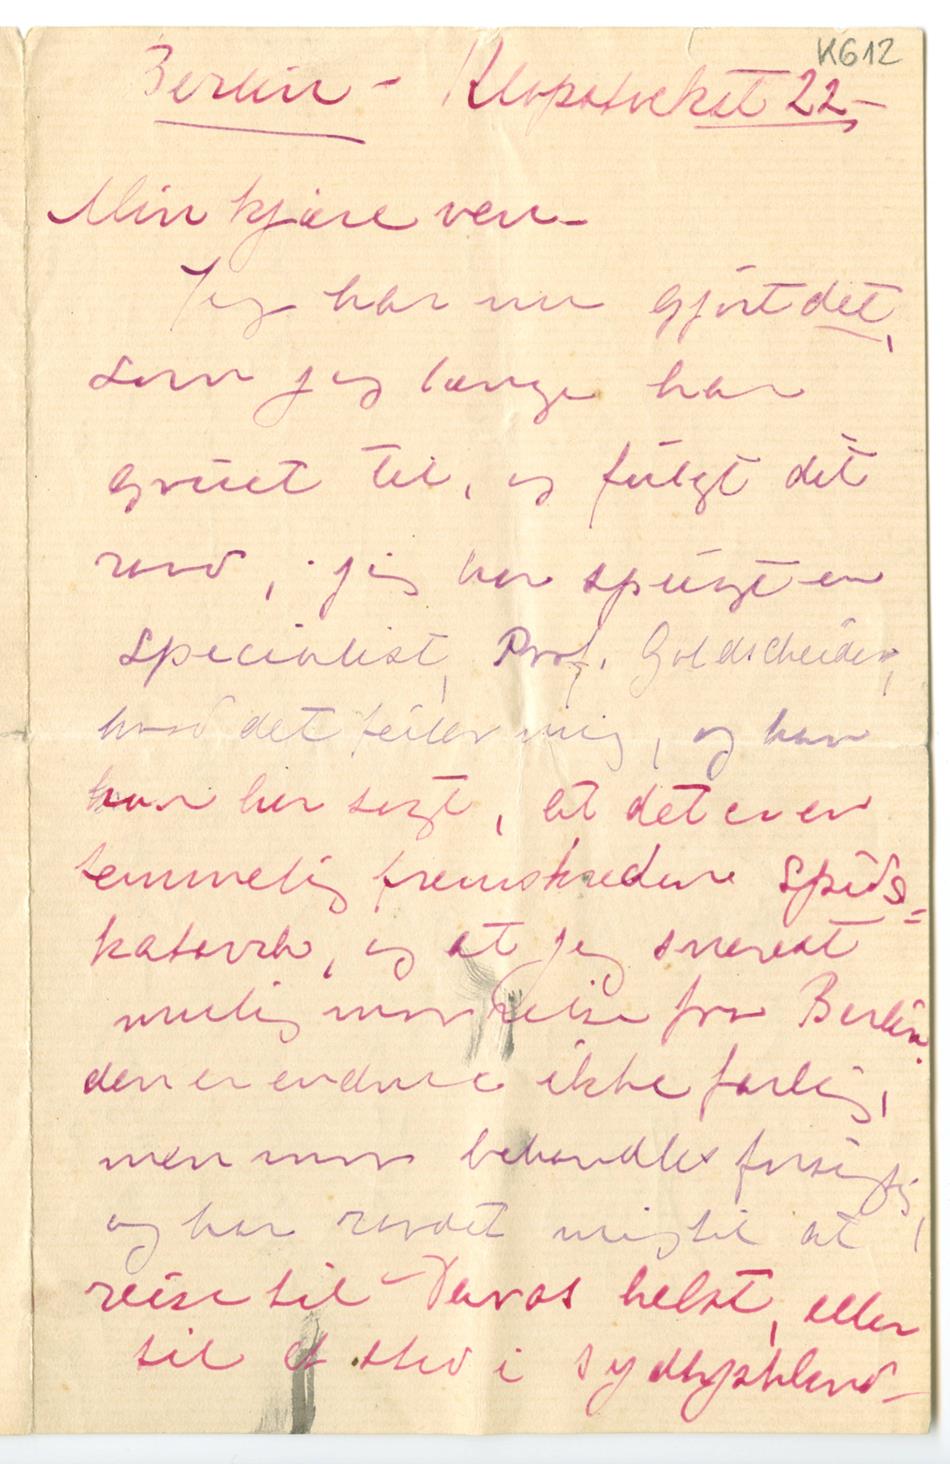 K612
Berlin - Klopstockst 22-
Min kjære ven-
Jeg har nu gjört det,
som jeg længe har
gruet til, og fulgt dit
raad, jeg har spurgt en
specialist, Prof. Goldscheider,
hvad det feiler mig, og han
han har sagt, at det er en
temmelig fremskreden Spids=
katarrh, og at jeg snarest
mulig maa reise fra Berlin.
den er endnu ikke farlig,
men maa behandles forsigtig,
og har raadet mig til at
reise til Davos helst, eller
til et sted i Sydtyskland-